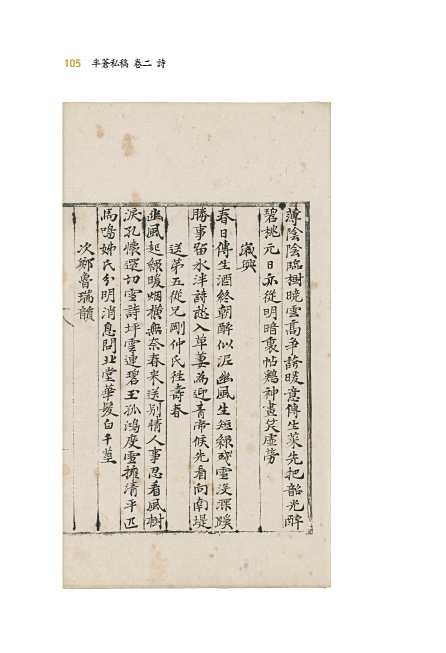 105 半蒼私稿 卷二 詩
薄陰陰臨樹曉雲高爭誇暖意傳生菜先把韶光醉
碧桃元日亦從明暗裏帖鷄神畫笑虛勞
歲興
春日傳生酒終朝醉似泥幽風生短綠殘雪沒深蹊
勝事留水泮詩趁入草萋為迎青帝候先看向南堤
送第五從兄剛仲氏往壽春
幽風起綠暖烟橫無奈春來送別情人事忍看風樹
淚孔懷還切雪詩坪雲連碧玉孤鴻度雪擁清平匹
馬鳴姊氏分明消息問北堂華髮白千莖
次鄉魯瑞韻